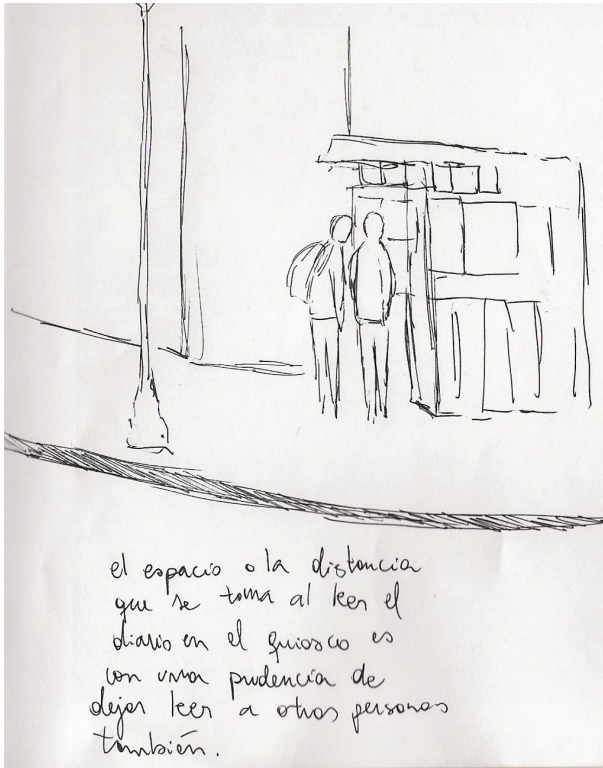 el espacio o la distancia
que se toma al leer el
diario en el quiosco es
con una prudencia de
dejar leer a otras personas
también.